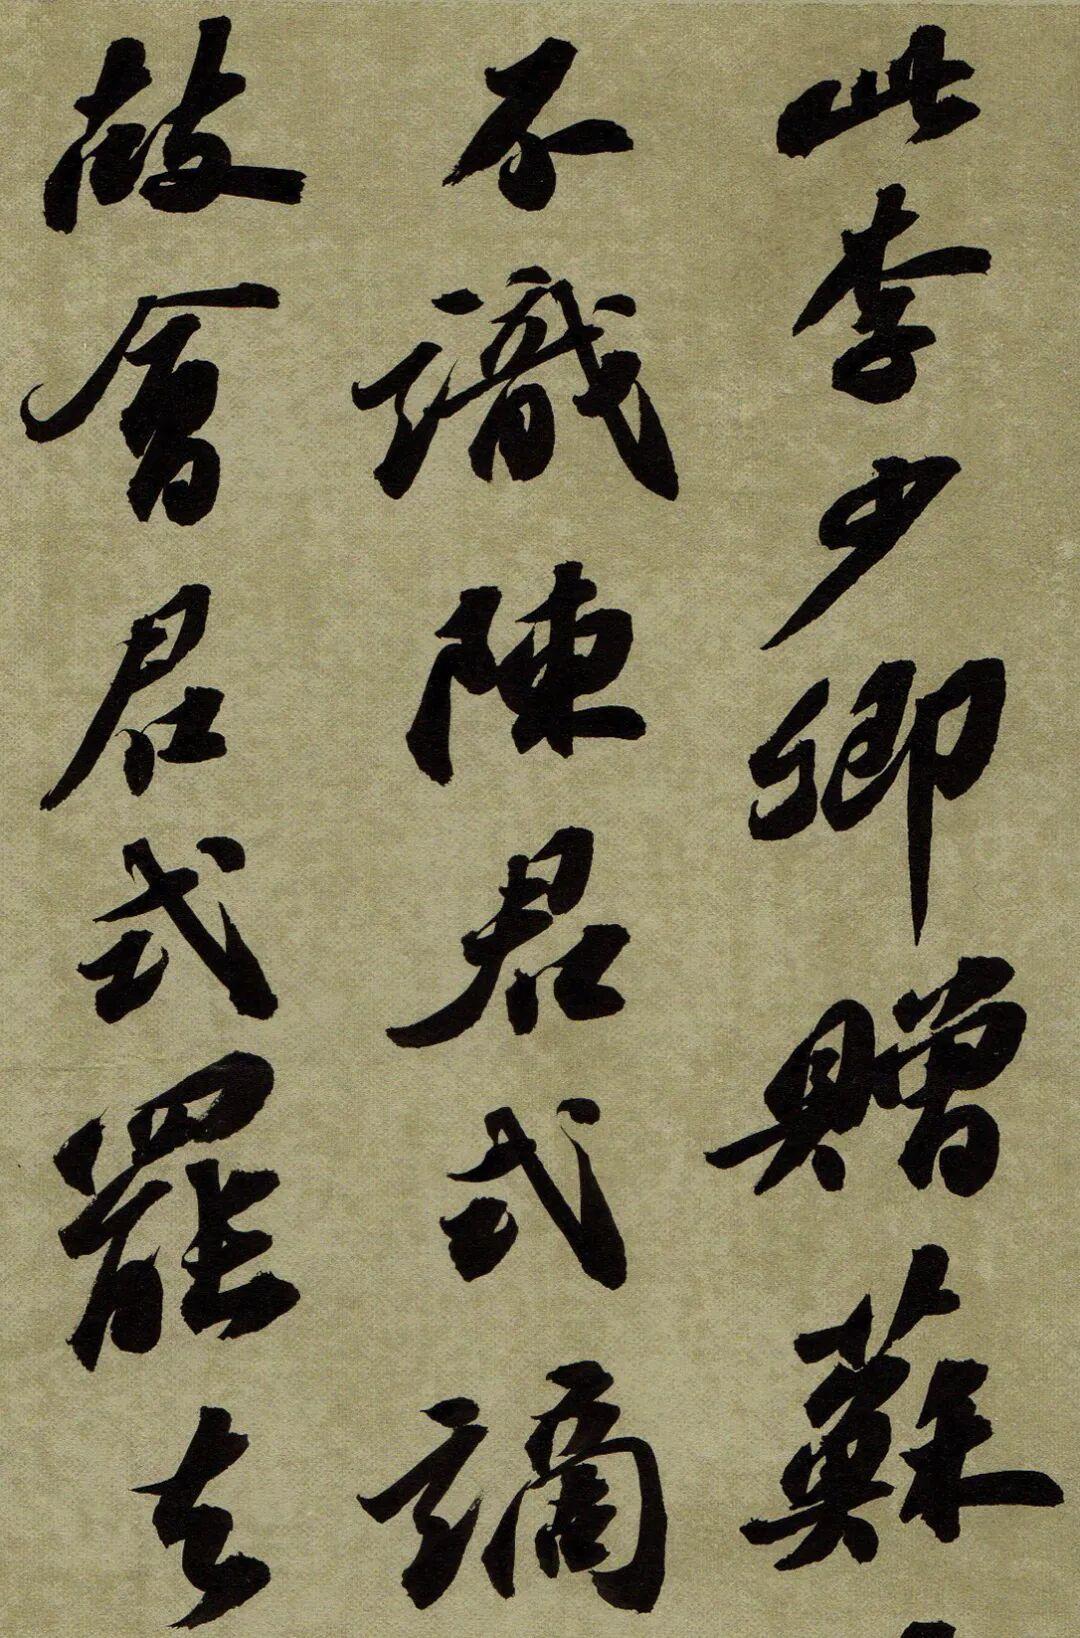 此李少卿贈蘇
不識陳君式謫
故會君式罷去